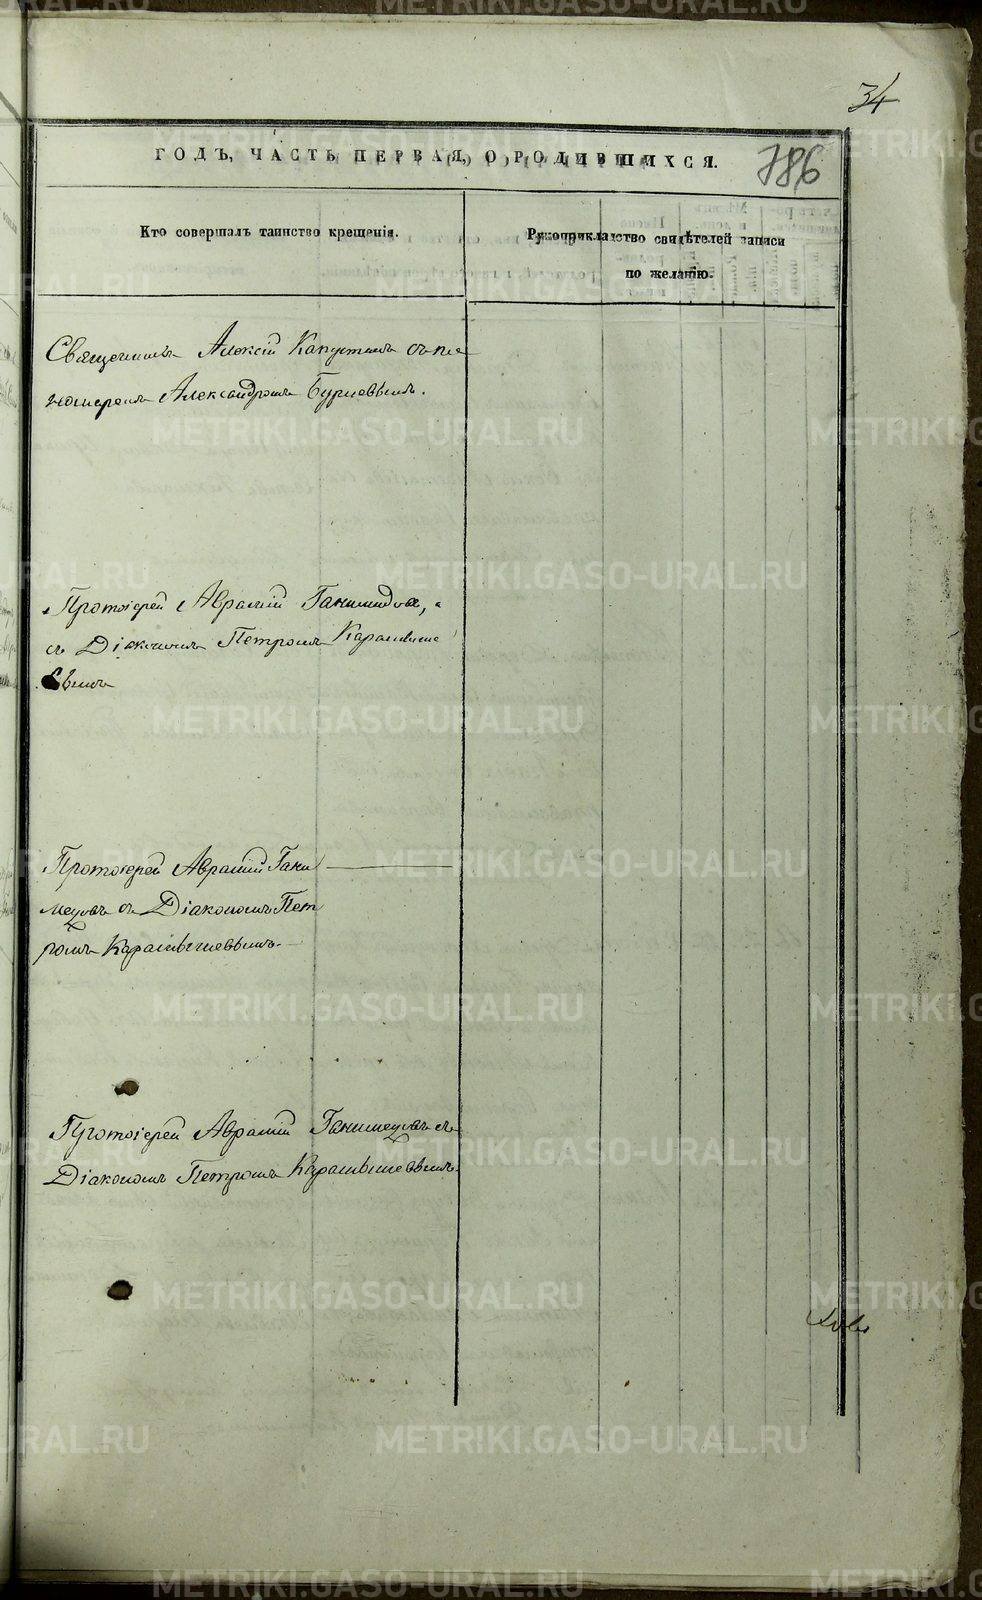 34
ГОДЪ, ЧАСТЬ ПЕРВАЯ, О РОДИВШИХСЯ.
786
Кто совершалъ таинство крещенія.
Рукоприкладство свидѣтелей записи
по желанію.
Священникъ Алексій Капустинъ съ по
номаремъ Александромъ Бурцевымъ.
Протоіерей Аврамій
съ Діакономъ Петромъ Карамыше
вымъ
Протоіерей Аврамій Гани
медовъ съ Діакономъ Пет
ромъ Карамышевымъ.
Протоіерей Аврамій Ганимедовъ съ
Діакономъ Петромъ Карамышевымъ.
METRIKI.GASO-URAL.RU